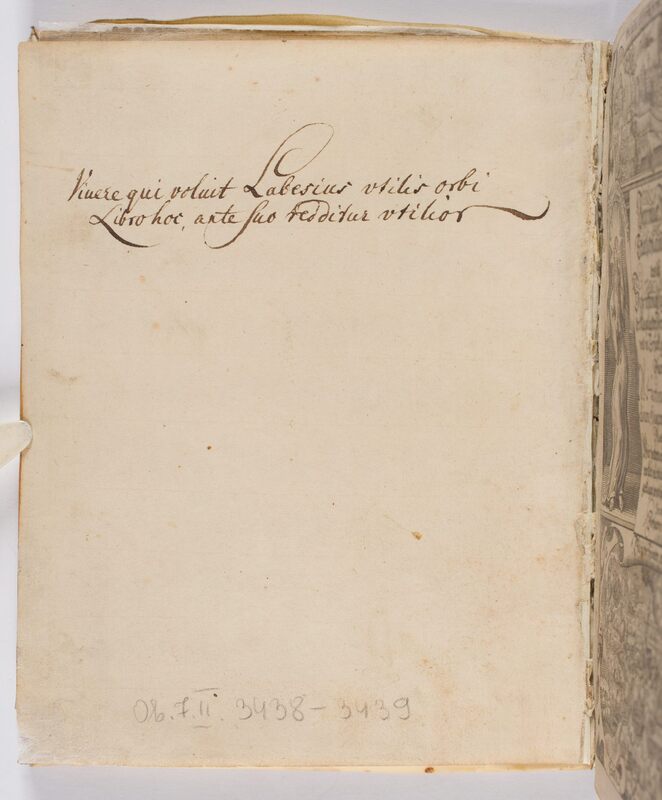 Viuere qui voluit Labesius vtilis orbi
Libro hoc, arte suo redditur vtilior
Ob.7.II. 3438-3439